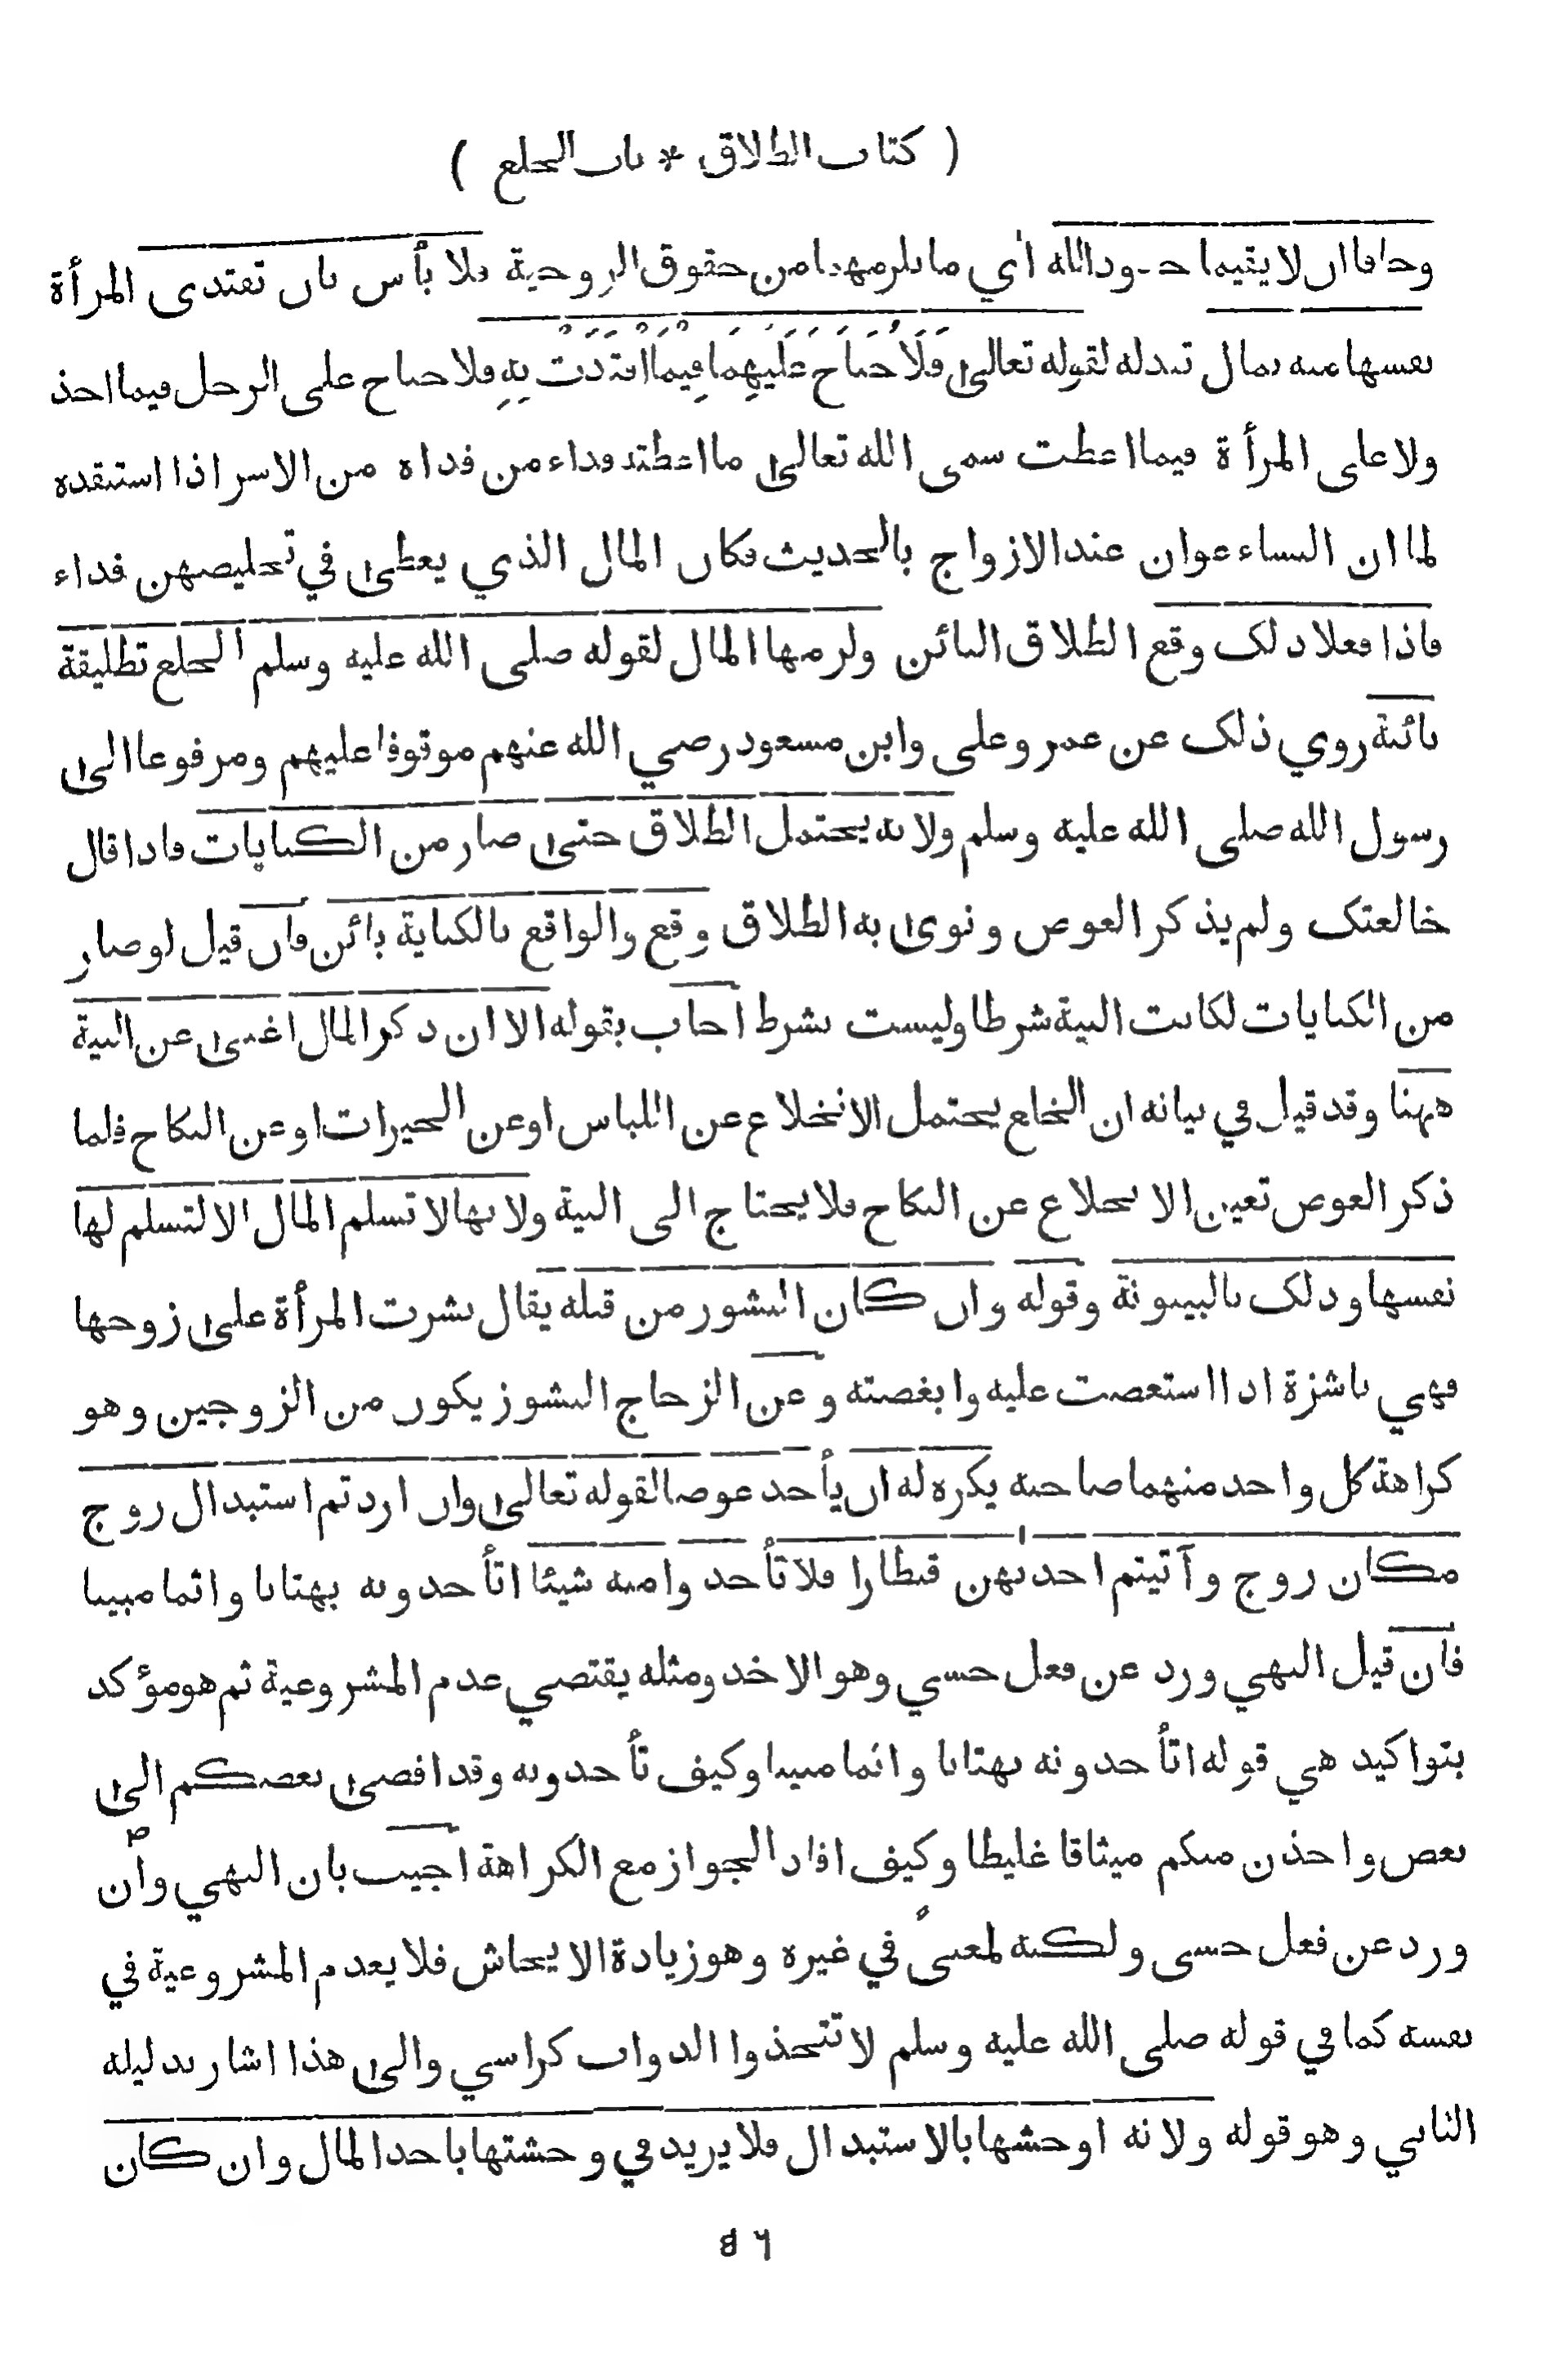 ( كتاب الطلاق * باب الخلع )
وخافا ان لا يقيما حدود الله اي ما يلزمهما من حقوق الزوجية فلا بأس بان تفتدى المرأة
نفسها منه بمال تبدله لقوله تعالى فَلَاجُنَاحَ عَلَيْهِمَا فِيمَا افْتَدَتْ بِهِ فلا جناح على الرجل فيما اخذ
ولا على المرأة فيما اعطت سمى الله تعالى ما اعطته فداء من فداه من الاسر اذا استنقذه
لما ان النساء عوان عند الازواج بالحديث فكان المال الذي يعطى في تخليصهن فداء
فاذا فعلا ذلك وقع الطلاق البائن ولزمها المال لقوله صلى الله عليه وسلم الخلع تطليقة
بائنة روي ذلك عن عمر وعلى وابن مسعود رضي الله عنهم موقوفا عليهم ومرفوعا الى
رسول الله صلى الله عليه وسلم ولانه يحتمل الطلاق حتى صار من الكنايات فاذا قال
خالعتك ولم يذكر العوض ونوى به الطلاق وقع والواقع بالكناية بائن فان قيل لو صار
من الكنايات لكانت النية شرطا وليست بشرط اجاب بقوله الا ان ذكر المال اغنى عن النية
ههنا وقد قيل في بيانه ان الخلع يحتمل الانخلاع عن اللباس او عن الخيرات او عن النكاح فلما
ذكر العوض تعين الانخلاع عن النكاح فلا يحتاج الى النية ولانها لا تسلم المال الا لتسلم لها
نفسها وذلك بالبينونة وقوله وان كان النشوز من قبله يقال نشزت المرأة على زوجها
فهي ناشزة اذا استعصت عليه وابغضته وعن الزجاج النشوز يكون من الزوجين وهو
كراهة كل واحد منهما صاحبه يكره له ان يأخذ عوضا لقوله تعالى وان اردتم استبدال زوج
مكان زوج وآتيتم احدٮهن قنطارا فلا تأخذوا منه شيئا اتأخذونه بهتانا واثما مبينا
فان قيل النهي ورد عن فعل حسي وهو الاخذ ومثله يقتضي عدم المشروعية ثم هو مؤكد
بتواكيد هي قوله اتأخذونه بهتانا واثما مبينا وكيف تأخذونه وقد افضى بعضكم الى
بعض واخذن منكم ميثاقا غليظا وكيف افاد الجواز مع الكراهة اجيب بان النهي وان
ورد عن فعل حسى ولكنه لمعنىً في غيره وهو زيادة الايحاش فلا يعدم المشروعية في
نفسه كما في قوله صلى الله عليه وسلم لا تتخذوا الدواب كراسي والى هذا اشار بدليله
الثاني وهو قوله ولانه اوحشها بالاستبدال فلا يزيد في وحشتها باخذ المال وان كان